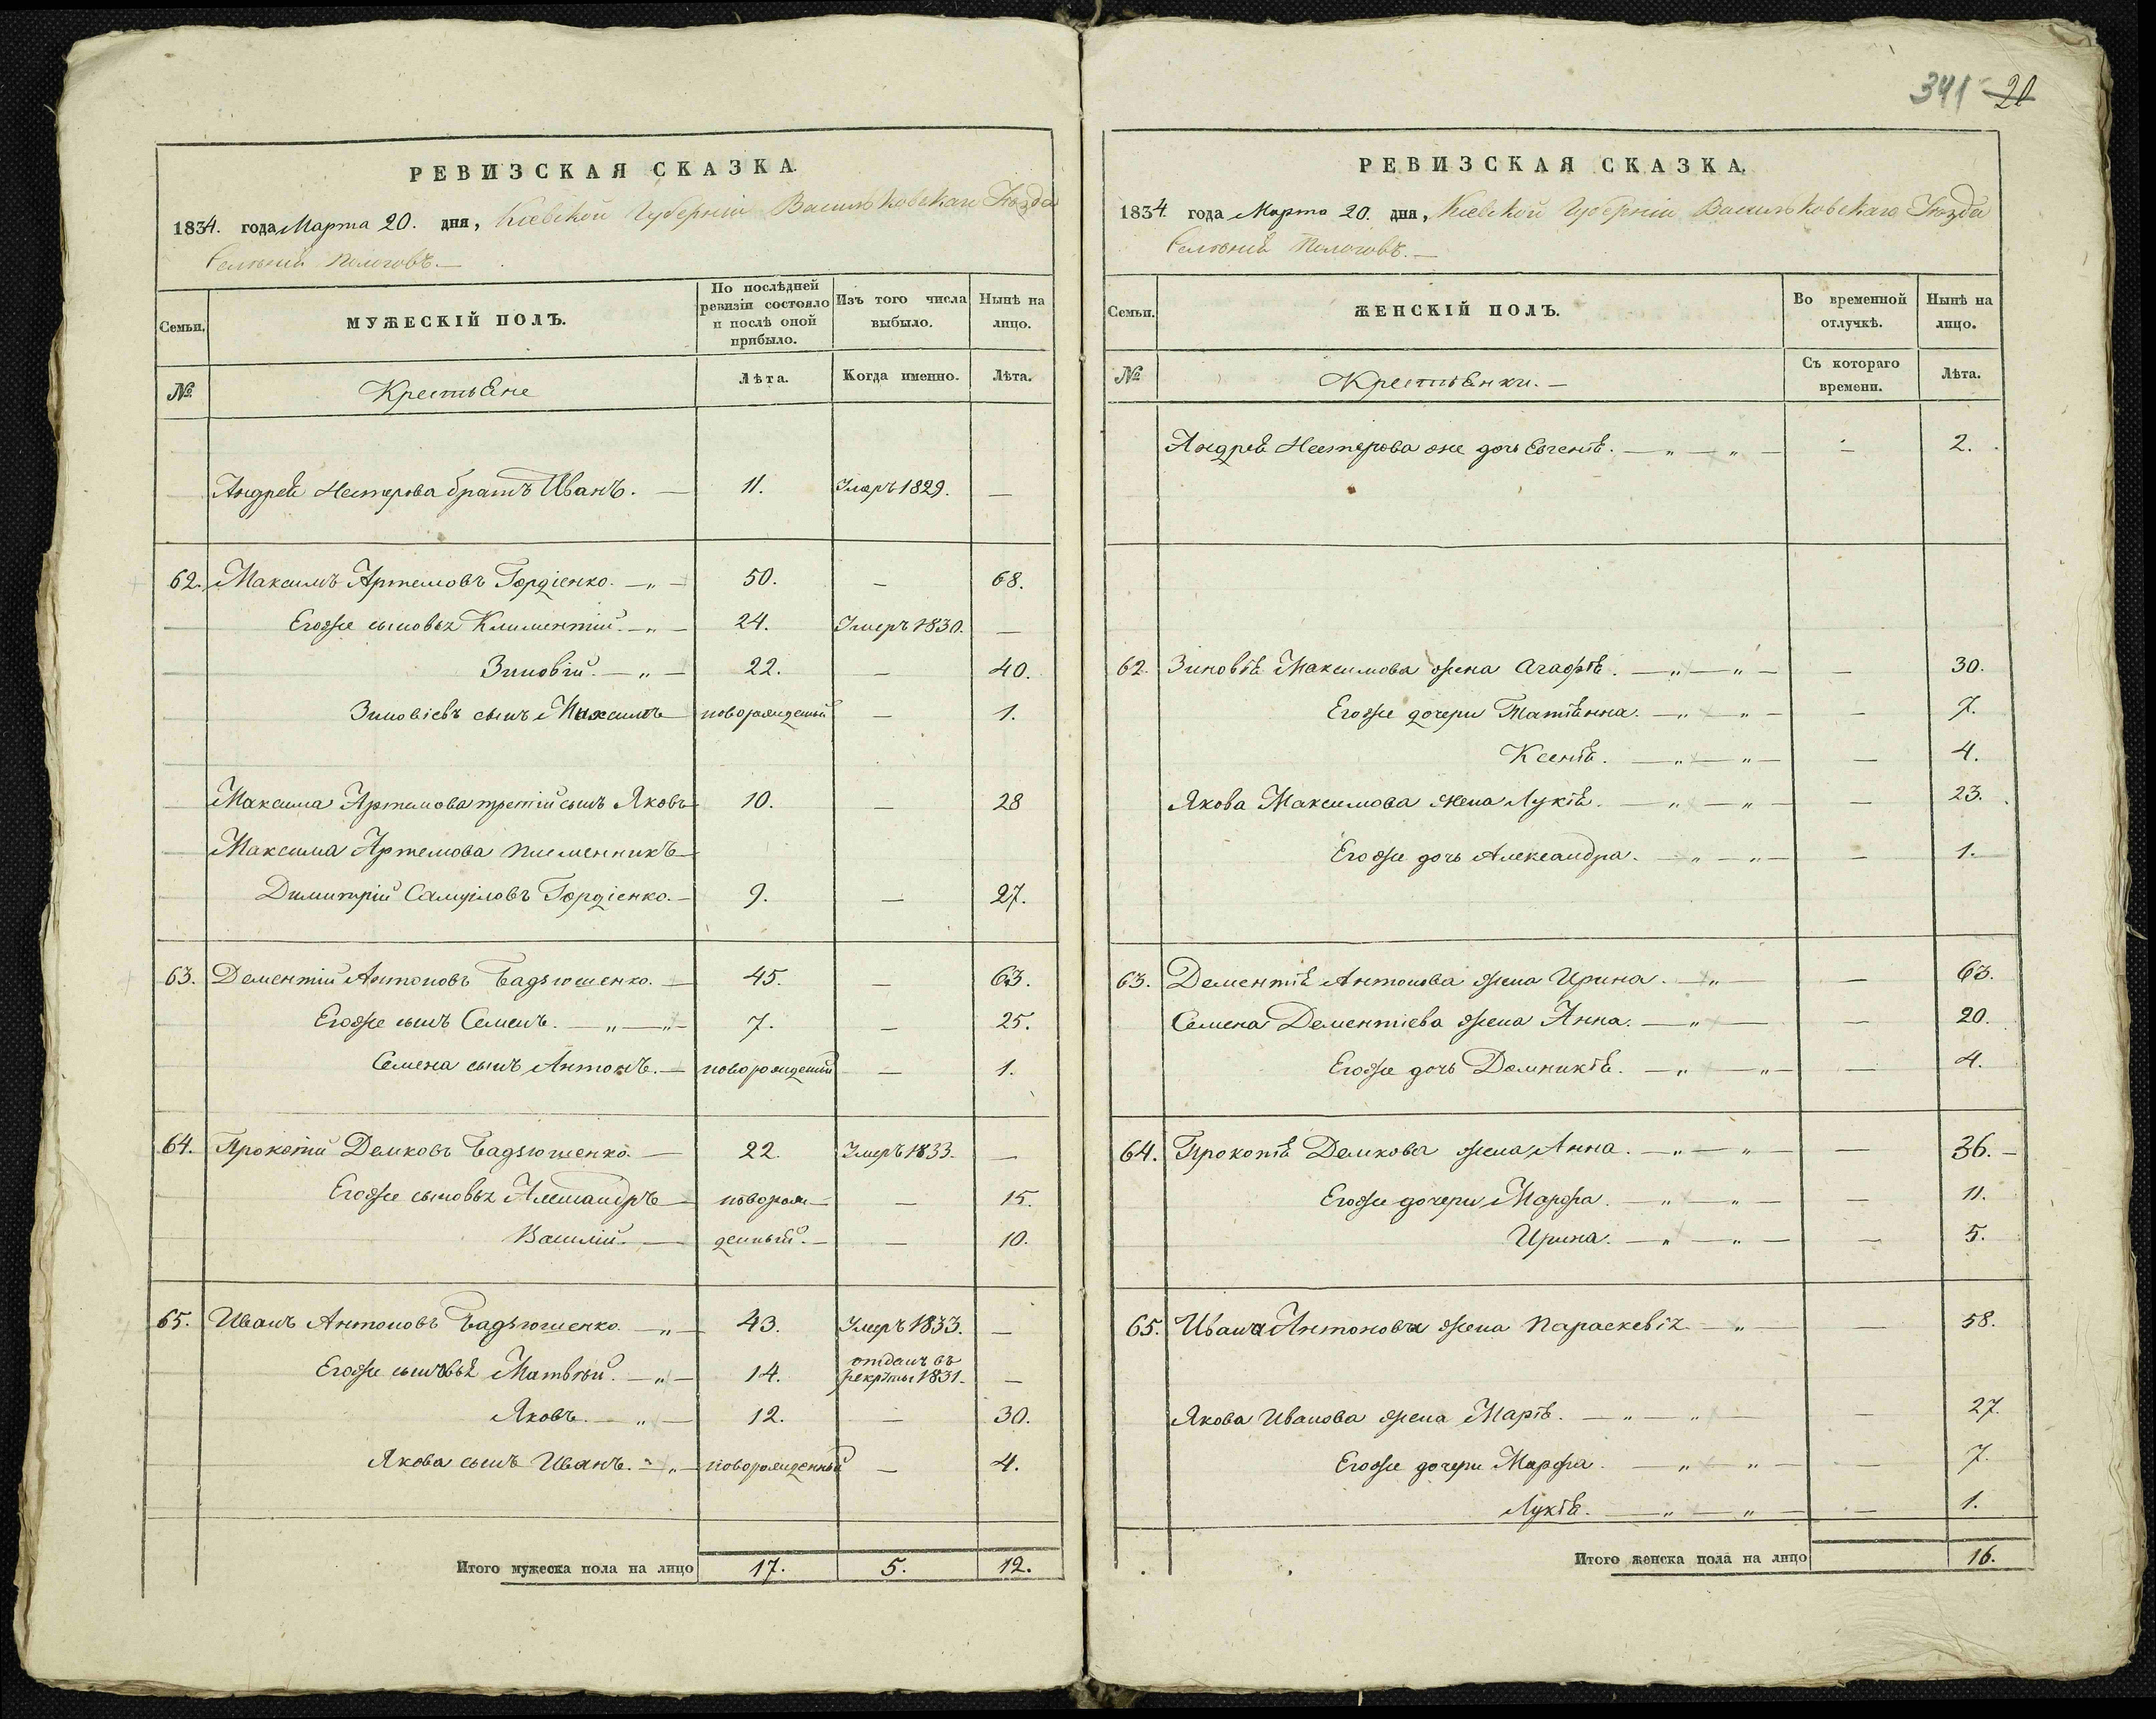 341 20
РЕВИЗСКАЯ СКАЗКА.
1834. года Марта 20. дня, Кіевской Губерніи Васильковскаго Уѣзда
Селенія Пологовъ.
Семьи.
МУЖЕСКІЙ ПОЛЪ.
По послѣдней ревизіи состояло и послѣ оной прибыло.
Изъ того числа выбыло.
Нынѣ на лицо.
№
Крестьяне
Лѣта.
Когда именно.
Лѣта.
Андрея Нестерова братъ Иванъ. — 11. Умеръ 1829. —
62. Максимъ Артемовъ Гордіенко. — „ — 50. — 68.
Егоже сыновья Климентій. — „ — 24. Умеръ 1830. —
Зиновій. — „ — 22. — 40.
Зиновіевъ сынъ Максимъ новорожденый — 1.
Максима Артемова третій сынъ Яковъ 10. — 28
Максима Артемова племенникъ —
Димитрій Самуиловъ Гордіенко. — 9. — 27.
63. Дементій Антоновъ Бадзюшенко. — 45. — 63.
Егоже сынъ Семенъ. — „ — „ — 7. — 25.
Семена сынъ Антонъ. — новорожденый — 1.
64. Прокопій Демковъ Бадзюшенко. — 22. Умеръ 1833. —
Егоже сыновья Александръ — новорож — — 15.
Василій. — денный. — — 10.
65. Иванъ Антоновъ Бадзюшенко. — „ — 43. Умеръ 1833. —
Егоже сыновья Матвѣй. — „ — 14. отданъ въ рекруты 1831. —
Яковъ. — „ — 12. — 30.
Якова сынъ Иванъ. — „ — новорожденный — 4.
Итого мужеска пола на лицо 17. 5. 12.
РЕВИЗСКАЯ СКАЗКА.
1834. года Марта 20. дня, Кіевской Губерніи Васильковскаго Уѣзда
Селенія Пологовъ. —
Семьи.
ЖЕНСКІЙ ПОЛЪ.
Во временной отлучкѣ.
Нынѣ на лицо.
№
Крестьянки. —
Съ котораго времени.
Лѣта.
Андрея Нестерова же дочь Евгенія. — „ — „ — - 2.
62. Зиновія Максимова жена Агафія. — „ — „ — — 30.
Егоже дочери Татіянна. — „ — „ — — 7.
Ксенія. — „ — „ — — 4.
Якова Максимова жена Лукія. — „ — „ — — 23.
Егоже дочь Александра. — „ — „ — — 1.
63. Дементія Антонова жена Ирина. — „ — — 63.
Семена Дементіева жена Анна. — „ — — 20.
Егоже дочь Домникія. — „ — „ — — 4.
64. Прокопія Демкова жена Анна. — „ — „ — — 36. —
Егоже дочери Марфа. — „ — „ — — 11.
Ирина. — „ — „ — — 5.
65. Ивана Антонова жена Параскевія. — „ — — 58.
Якова Иванова жена Марія. — „ — „ — 27.
Егоже дочери Марфа. — „ — „ — — 7.
Лукія. — „ — „ — — 1.
Итого женска пола на лицо 16.